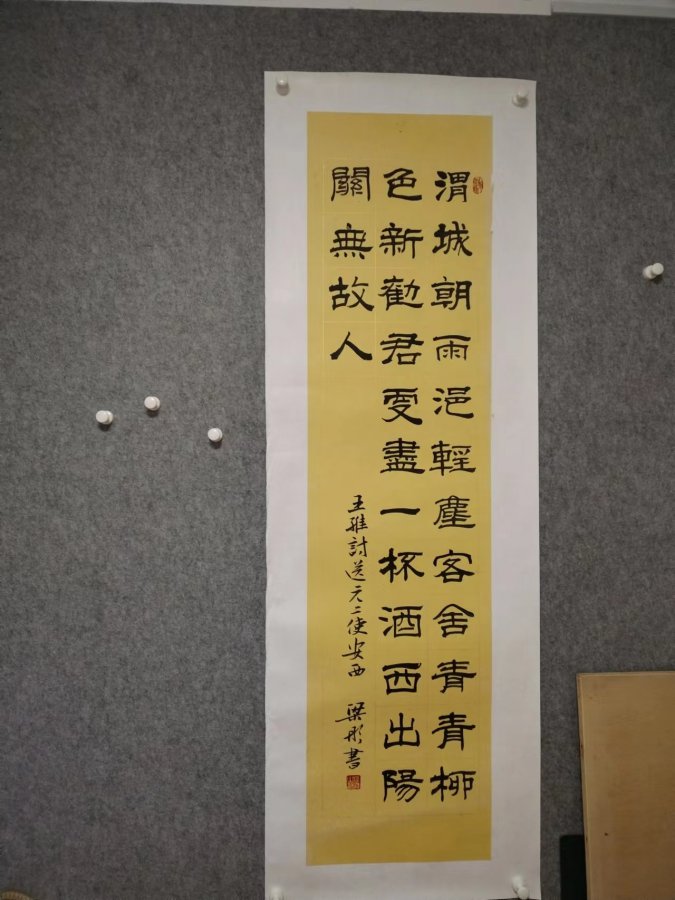 渭城朝雨浥輕塵客舍青青柳
色新勸君更盡一杯酒西出陽
關無故人
王維詩送元二使安西
梁彤書